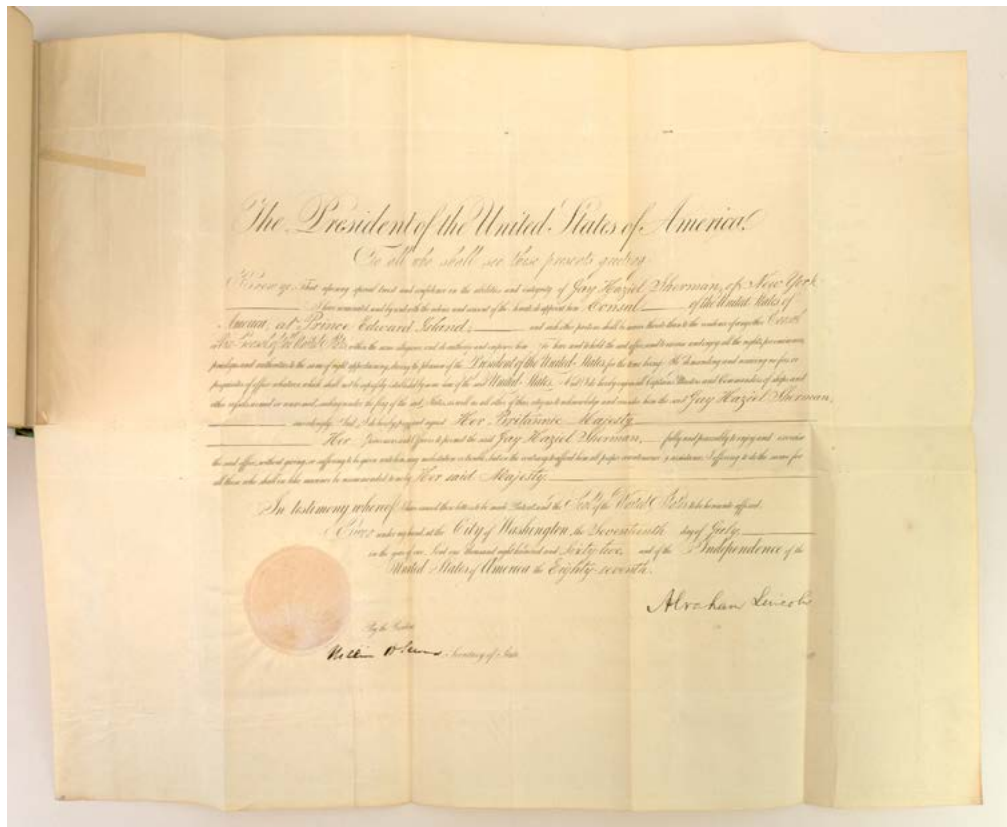 The President of the United States of America,
To all who shall see these presents greeting
Know ye; That reposing special trust and confidence in the abilities and integrity of Jay Haziel Sherman, of New York
I have nominated, and by and with the advice and consent of the Senate do appoint him Consul of the United States of
America, at Prince Edward Island; and such other parts as shall be nearer thereto than to the residence of any other Consul
of the United States within the same allegiance, and do authorize and empower him to have and to hold the said office, and to exercise and enjoy all the rights, preeminences,
privileges and authorities to the same of right appertaining, during the pleasure of the President of the United States for the time being; He demanding and receiving no fees or
perquisites of office whatever, which shall not be expressly established by some law of the said United States. And I do hereby enjoin all Captains, Masters and Commanders of ships and
other vessels, armed or unarmed, sailing under the flag of the said States, as well as all other of their citizens, to acknowledge and consider him the said Jay Haziel Sherman,
accordingly. And I do hereby pray and request Her Britannic Majesty
Her Governors and Officers to permit the said Jay Haziel Sherman, fully and peaceably to enjoy and exercise
the said office, without giving, or suffering to be given unto him, any molestation or trouble, but on the contrary to afford him all proper countenance & assistance; I offering to do the same for
all those who shall in like manner be recommended to me by Her said Majesty.
In testimony whereof I have caused these letters to be made Patent, and the Seal of the United States to be hereunto affixed.
Given under my hand, at the City of Washington, the Seventeenth day of July,
in the year of our Lord one thousand eight hundred and Sixty two, and of the Independence of the
United States of America, the Eighty-seventh.
Abraham Lincoln
By the President
William H Seward Secretary of State.